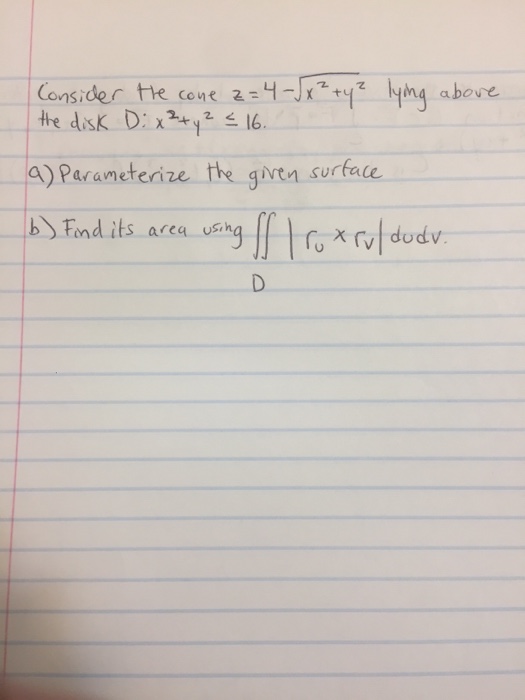 Consider the cone z = 4 - √x² + y² lying above
the disk D: x² + y² ≤ 16.
a) Parameterize the given surface
b) Find its area using ∬ | rᵤ × rᵥ | dudv.
D